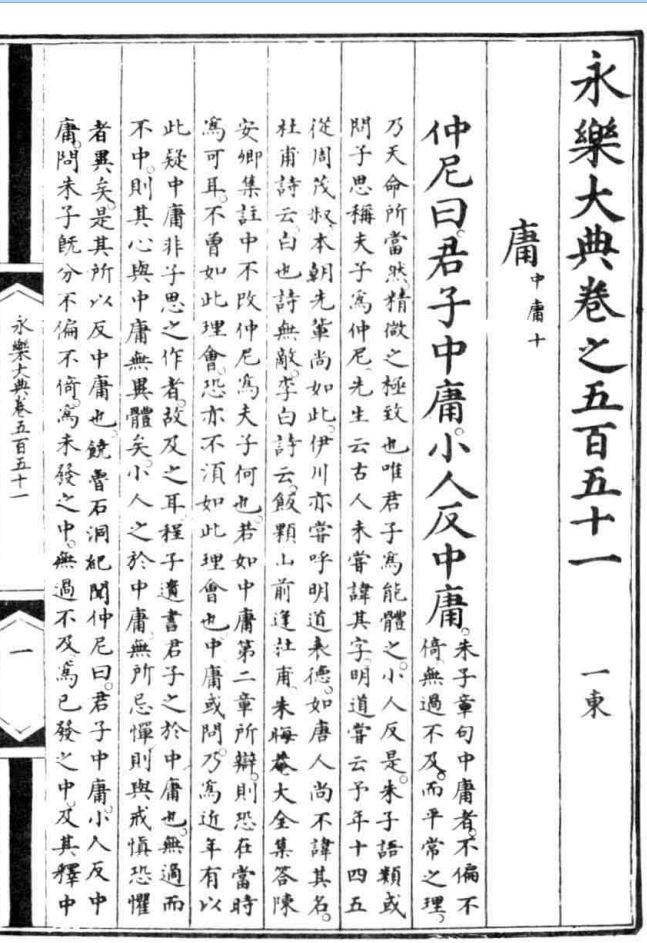 永樂大典卷之五百五十一 一東
庸 中庸十
仲尼曰。君子中庸。小人反中庸。
朱子章句中庸者。不偏不
倚。無過不及。而平常之理。
乃天命所當然。精微之極致也唯君子爲能體之。小人反是。朱子語類或
問子思稱夫子爲仲尼。先生云古人未嘗諱其字。明道嘗云予年十四五
從周茂叔。本朝先輩尚如此。伊川亦嘗呼明道表德。如唐人尚不諱其名。
杜甫詩云。白也詩無敵。李白詩云。飯顆山前逢杜甫。朱晦菴大全集答陳
安卿集註中不改仲尼爲夫子何也。若如中庸第二章所辯。則恐在當時
爲可耳。不曾如此理會。恐亦不須如此理會也。中庸或問。乃爲近年有以
此疑中庸非子思之作者。故及之耳。程子遺書君子之於中庸也。無適而
不中。則其心與中庸無異體矣。小人之於中庸。無所忌憚。則與戒慎恐懼
者異矣。是其所以反中庸也。饒魯石洞紀聞仲尼曰。君子中庸。小人反中
庸。問朱子旣分不偏不倚。爲未發之中。無過不及爲已發之中。及其釋中
永樂大典卷五百五十一
一